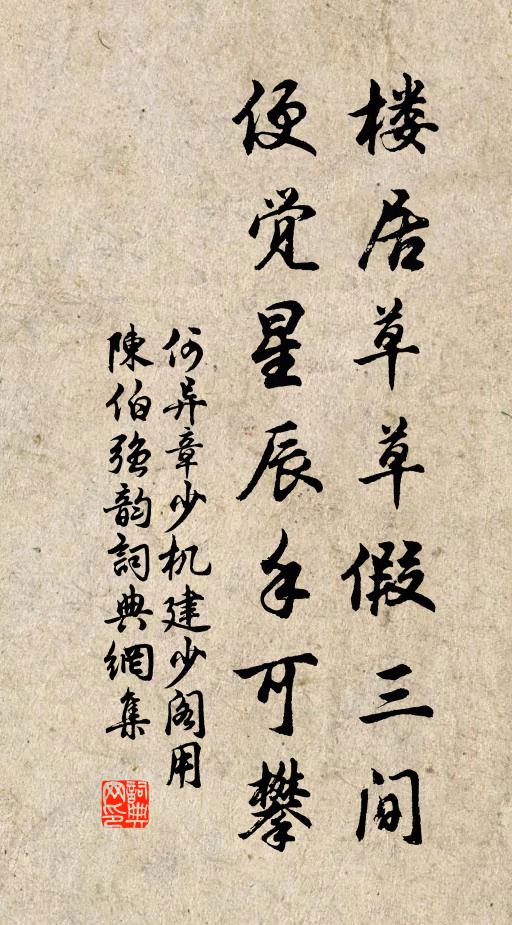 楼居草草假三间
便觉星辰手可攀
何异章少机建少阁用
陳伯强韵詞典網集
詞典网印